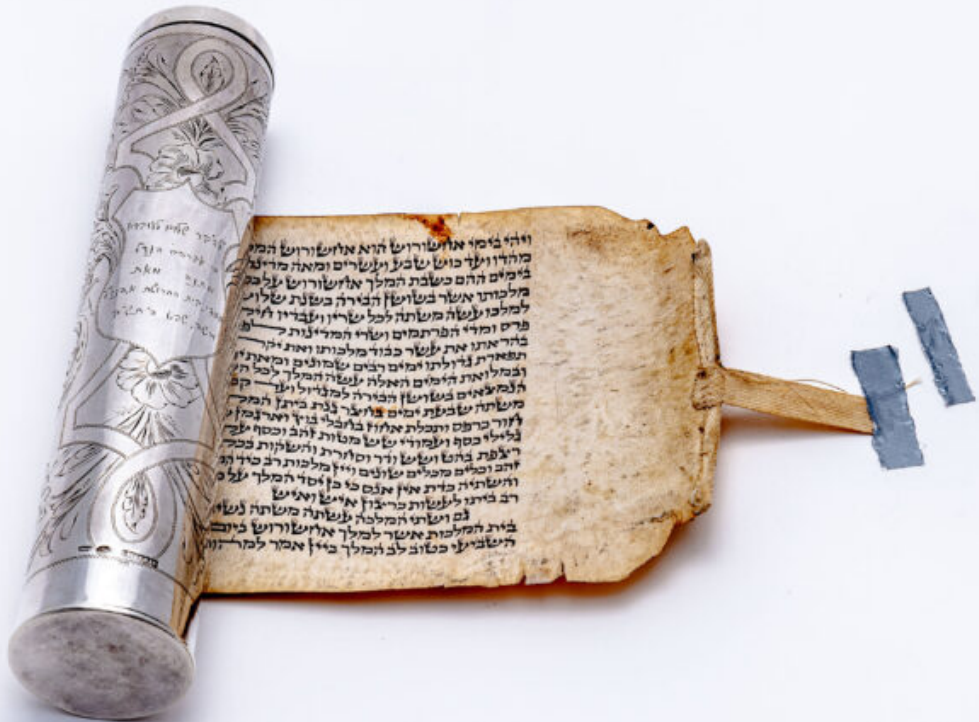 מאת
ויהי בימי אחשורוש הוא אחשורוש
מהדו ועד כוש שבע ועשרים ומאה
בימים ההם כשבת המלך אחשורוש על
מלכותו אשר בשושן הבירה בשנת שלוש
למלכו עשה משתה לכל שריו ועבדיו
פרס ומדי הפרתמים ושרי המדינות
בהראתו את עשר כבוד מלכותו ואת יקר
תפארת גדולתו ימים רבים שמונים ומאת
ובמלואת הימים האלה עשה המלך לכל
הנמצאים בשושן הבירה למגדול ועד
משתה שבעת ימים בחצר גנת ביתן
חור כרפס ותכלת אחוז בחבלי בוץ וארגמן
גלילי כסף ועמודי שש מטות זהב וכסף על
רצפת בהט ושש ודר וסחרת והשקות
זהב וכלים מכלים שונים ויין מלכות רב כיד
והשתיה כדת אין אנס כי כן יסד המלך על
רב ביתו לעשות כרצון איש ואיש
גם ושתי המלכה עשתה משתה
בית המלכות אשר למלך אחשורוש ביום
השביעי כטוב לב המלך ביין אמר